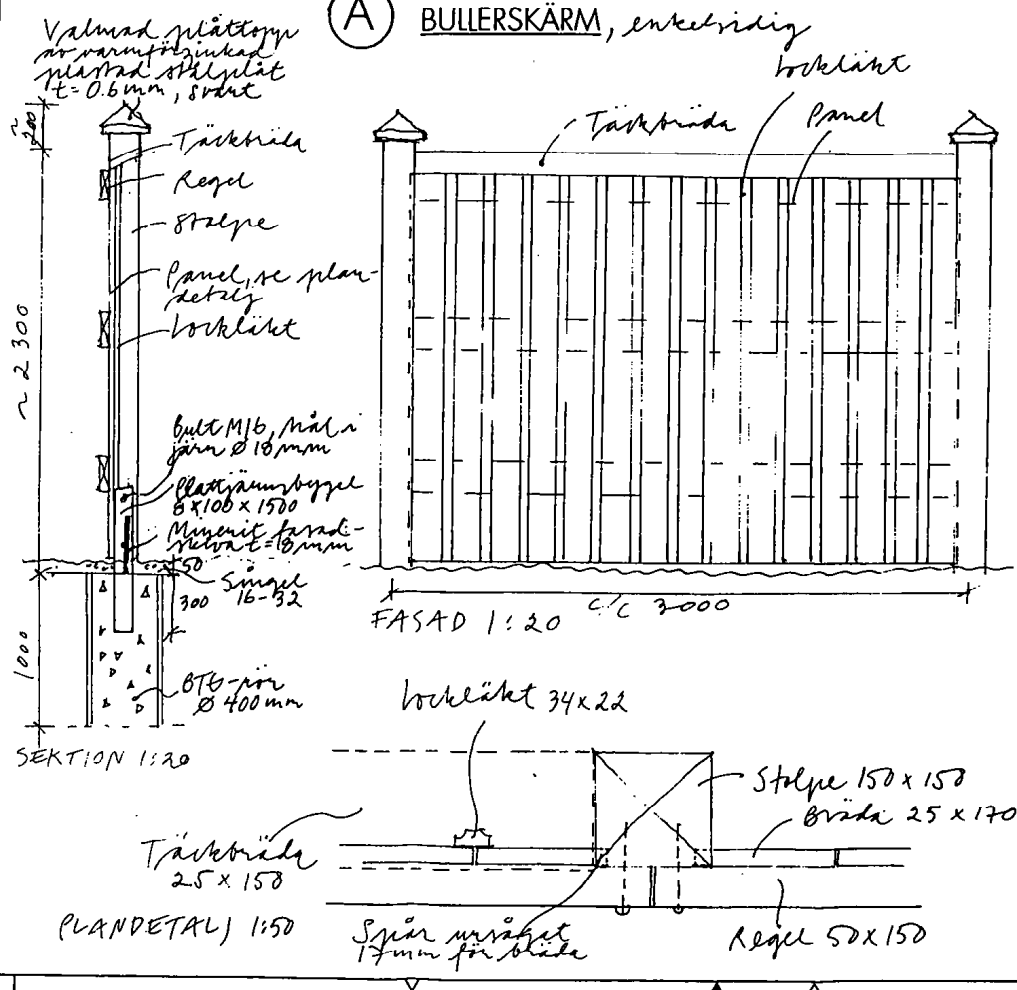 A BULLERSKÄRM, enkelsidig
Valmad plåttopp
av varmförzinkad
plastad stålplåt
t=0.6mm, svart
~200
Täckbräda
Regel
Stolpe
Panel, se plan-
detalj
Lockläkt
~ 2 300
Bult M16, hål i
järn Ø 18 mm
Plattjärnsbygel
8x100x1500
Minerit fasad-
skiva t=8mm
50
Singel
16-32
300
1000
BTG-rör
Ø 400mm
SEKTION 1:20
Lockläkt
Täckbräda
Panel
c/c 3000
FASAD 1:20
Lockläkt 34x22
Stolpe 150x150
Bräda 25x170
Täckbräda
25x150
PLANDETALJ 1:50
Spår ursågat
17mm för bräda
Regel 50x150